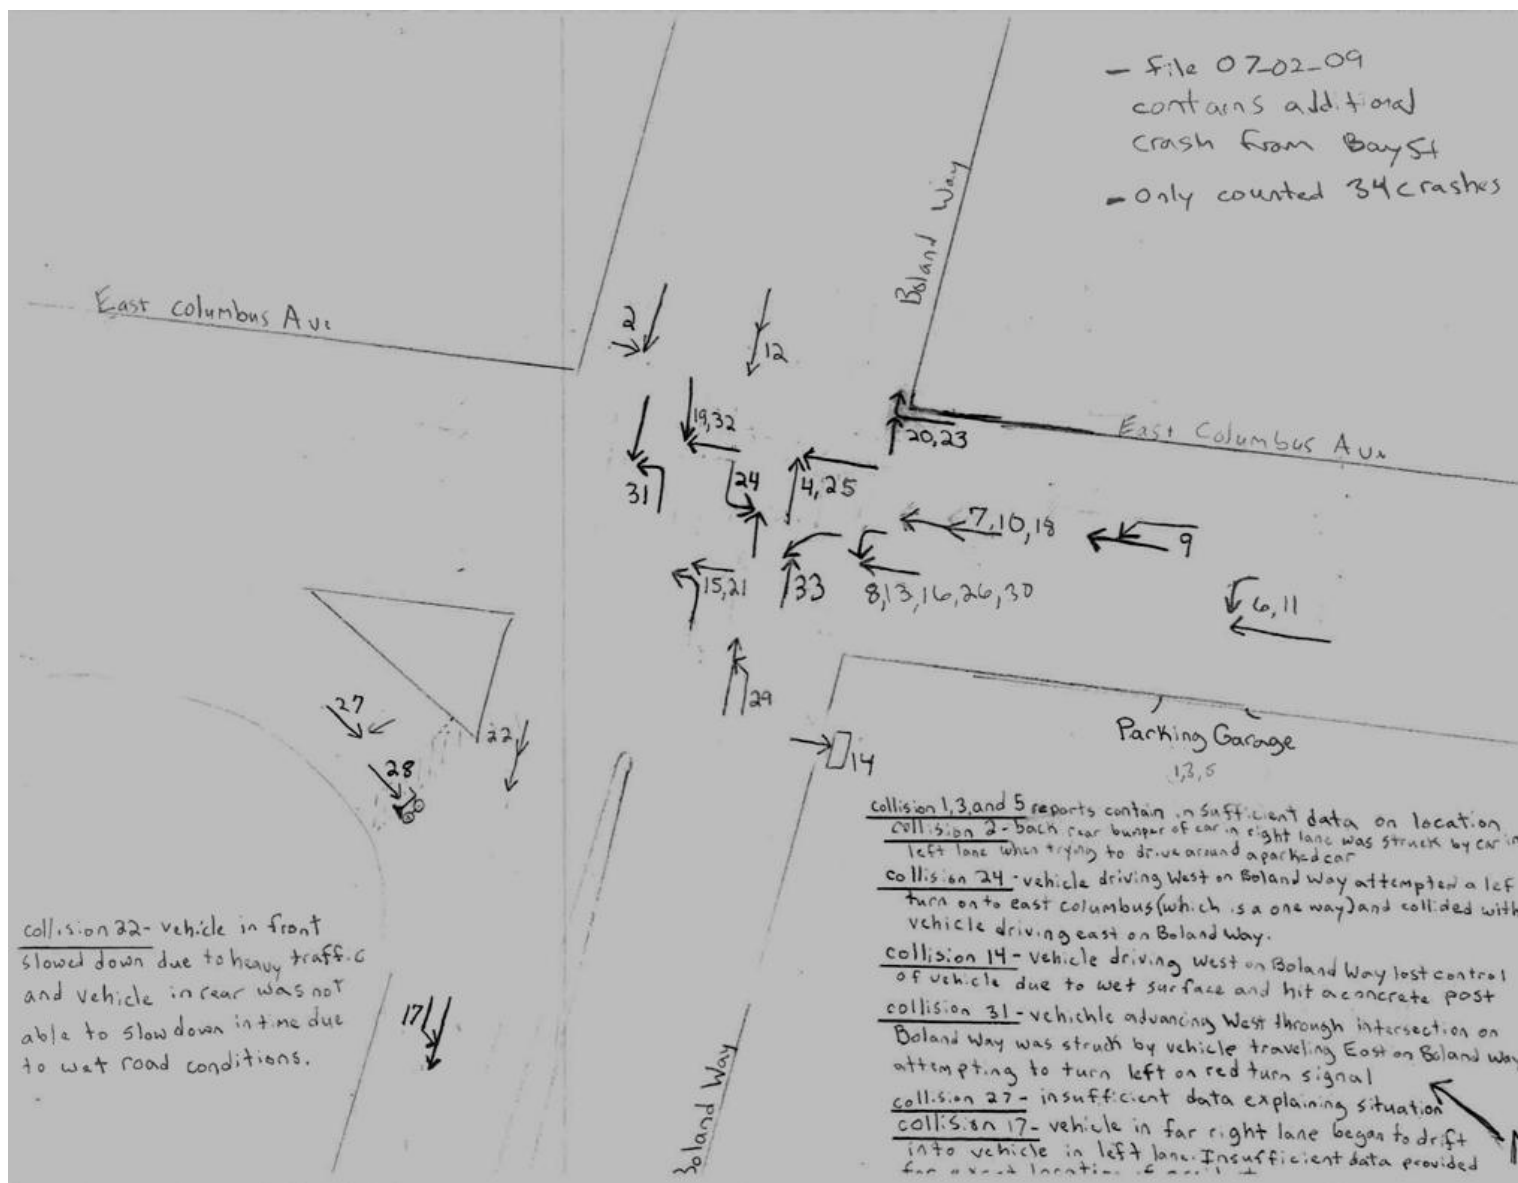 - File 07-02-09
contains additional
crash from Bay St
- Only counted 34 crashes
Boland Way
East Columbus Ave
East Columbus Ave
2
12
19,32
20,23
31
24
4,25
7,10,18
9
15,21
33
8,13,16,26,30
6,11
29
27
22
28
14
17
Parking Garage
1,3,5
Boland Way
collision 22- vehicle in front
slowed down due to heavy traffic
and vehicle in rear was not
able to slow down in time due
to wet road conditions.
collision 1,3,and 5 reports contain insufficient data on location
collision 2- back rear bumper of car in right lane was struck by car in
left lane when trying to drive around a parked car
collision 24 - vehicle driving West on Boland Way attempted a lef
turn onto east columbus(which is a one way) and collided with
vehicle driving east on Boland Way.
collision 14 - vehicle driving West on Boland Way lost control
of vehicle due to wet surface and hit a concrete post
collision 31 - vehichle advancing West through intersection on
Boland Way was struck by vehicle traveling East on Boland Way
attempting to turn left on red turn signal
collision 27 - insufficient data explaining situation
collision 17- vehicle in far right lane began to drift
into vehicle in left lane. Insufficient data provided